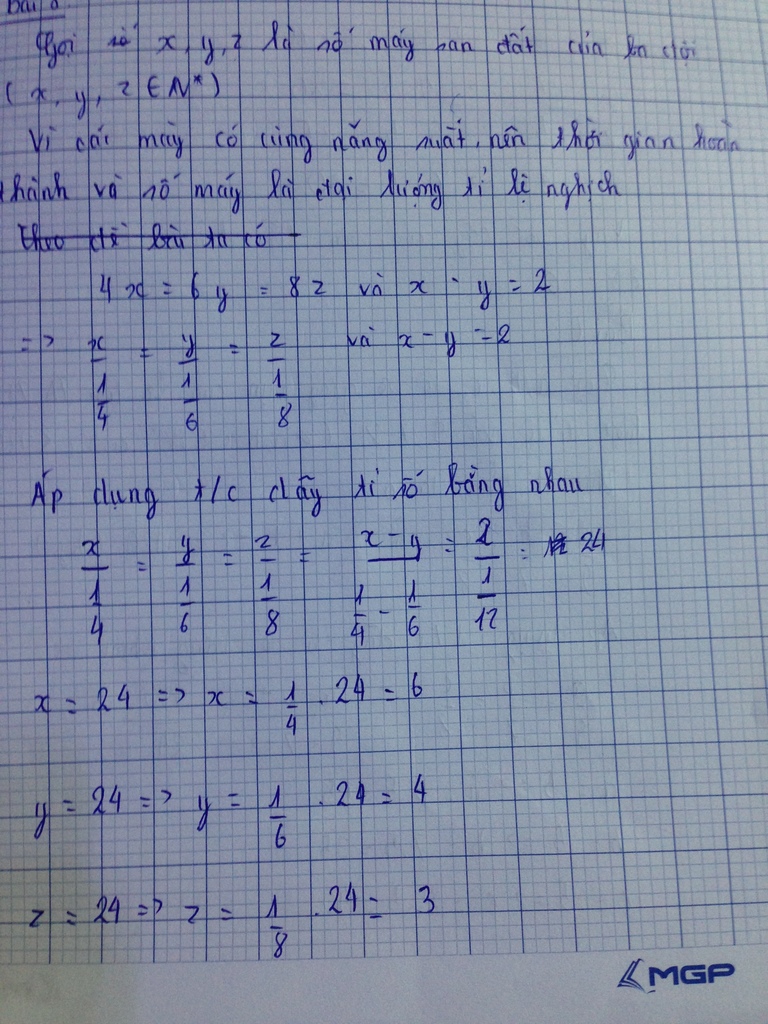 Bài
Gọi số x, y, z là số máy san đất của ba đội
( x, y, z ∈ N* )
Vì các máy có cùng năng suất, nên thời gian hoàn
thành và số máy là đại lượng tỉ lệ nghịch
Theo đề bài ta có
4x = 6y = 8z và x - y = 2
=> x/(1/4) = y/(1/6) = z/(1/8) và x - y = 2
Áp dụng t/c dãy tỉ số bằng nhau
x/(1/4) = y/(1/6) = z/(1/8) = (x - y)/(1/4 - 1/6) = 2/(1/12) = 24
x = 24 => x = 1/4 . 24 = 6
y = 24 => y = 1/6 . 24 = 4
z = 24 => z = 1/8 . 24 = 3
MGP